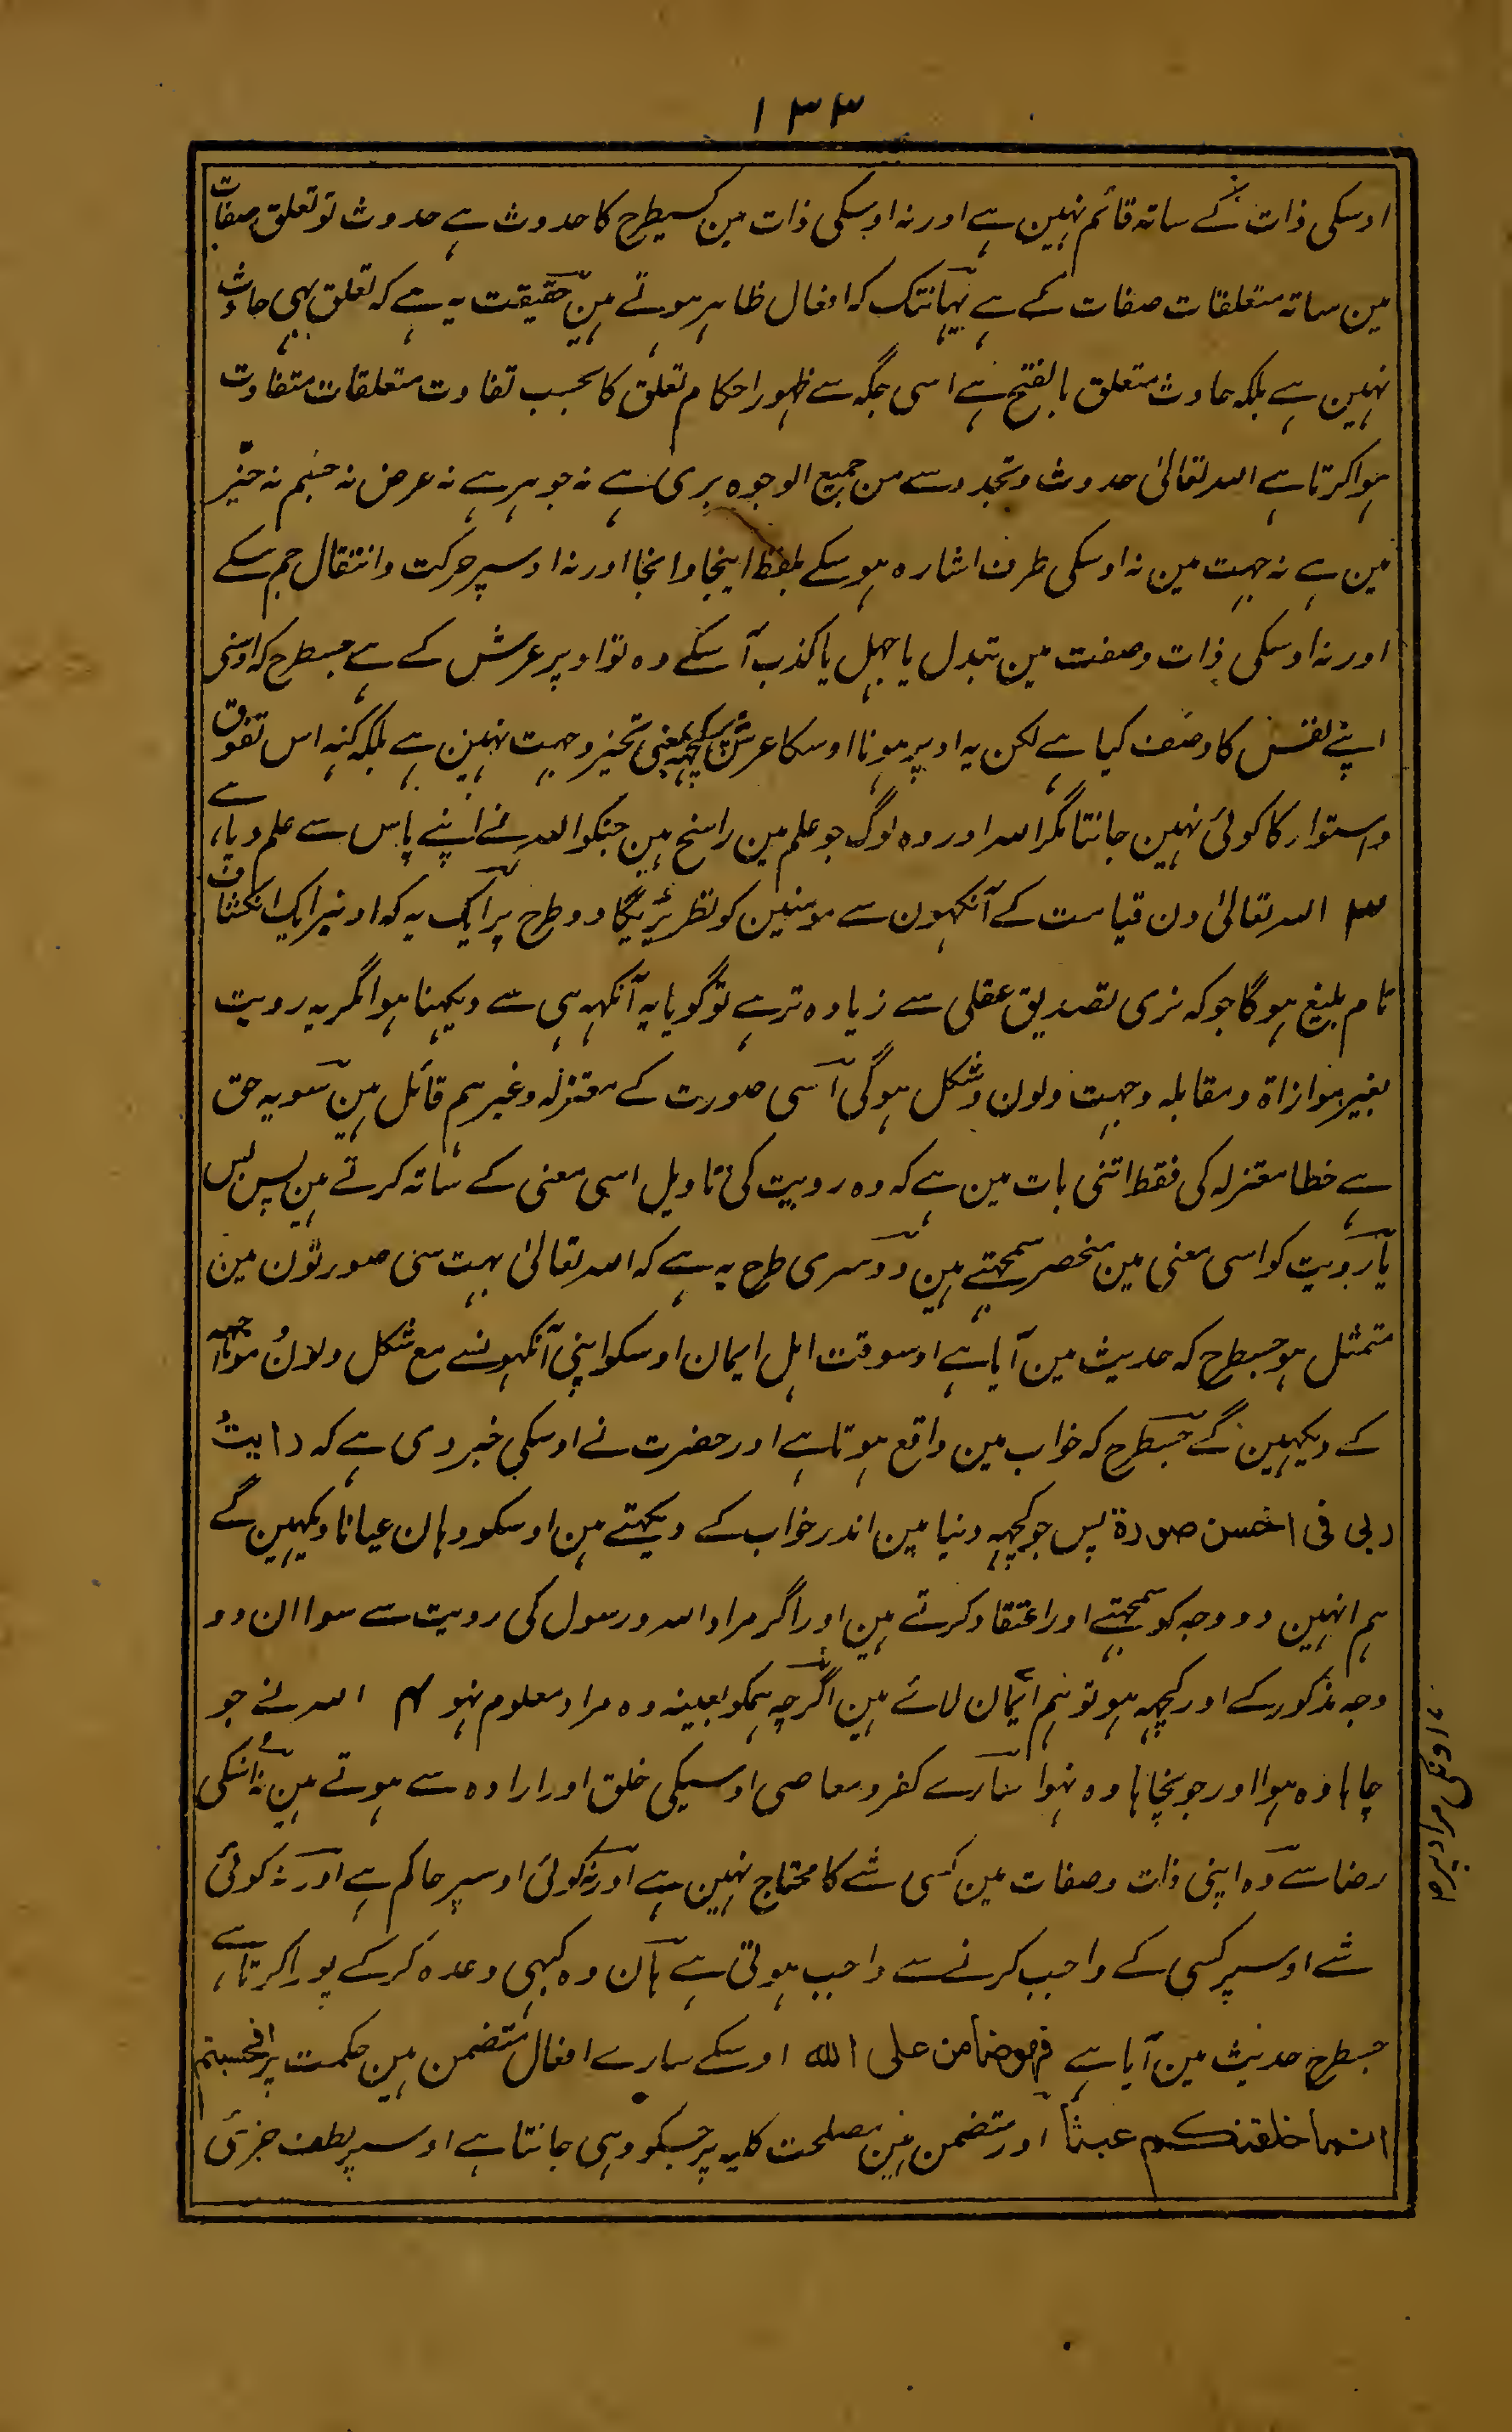 ۱۳۳
اوسکی ذات کے ساتہ قائم نہین ہے اور نہ اوسکی ذات مین کسیطرح کا حدوث ہے حدوث تو تعلق صفات
مین ساتہ متعلقات صفات کے ہے یہانتک کہ افعال ظاہر ہوتے ہین حقیقت یہ ہے کہ تعلق بہی حادث
نہین ہے بلکہ حادث متعلق بالفتح ہے اسی جگہ سے ظہور احکام تعلق کا بحسب تفاوت متعلقات متفاوت
ہوا کرتا ہے اللہ تعالیٰ حدوث و تجدد سے من جمیع الوجوہ بری ہے نہ جوہر ہے نہ عرض نہ جسم نہ حیّز
مین ہے نہ جہت مین نہ اوسکی طرف اشارہ ہو سکے بلفظ اینجا و انجا اور نہ اوسپر حرکت و انتقال جم سکے
اور نہ اوسکی ذات و صفت مین تبدل یا جہل یا کذب آ سکے وہ تو اوپر عرش کے ہے جسطرح کہ اوسنی
اپنے نفس کا وصف کیا ہے لکن یہ اوپر ہونا اوسکا عرش کے کچہہ بمعنی تحیز و جہت نہین ہے بلکہ کنہ اس تفوق
و استوار کا کوئی نہین جانتا مگر اللہ اور وہ لوگ جو علم مین راسخ ہین جنکو اللہ نے اپنے پاس سے علم دیا ہے
۳ اللہ تعالیٰ دن قیامت کے آنکہون سے مومنین کو نظر پڑیگا دو طرح پر ایک یہ کہ اونپر ایک انکشاف
تام بلیغ ہوگا جو کہ نری تصدیق عقلی سے زیادہ تر ہے تو گویا یہ آنکہہ ہی سے دیکہنا ہوا مگر یہ رویت
بغیر موازاۃ و مقابلہ و جہت و لون و شکل ہوگی اسی صورت کے معتزلہ وغیرہم قائل ہین سو یہ حق
ہے خطا معتزلہ کی فقط اتنی بات مین ہے کہ وہ رویت کی تاویل اسی معنی کے ساتہ کرتے ہین پس بس
یا رویت کو اسی معنی مین منحصر سمجہتے ہین دوسری طرح یہ ہے کہ اللہ تعالیٰ بہت سی صورتون مین
متمثل ہو جسطرح کہ حدیث مین آیا ہے اوسوقت اہل ایمان اوسکو اپنی آنکہونسے مع شکل و لون مواجہہ
کے دیکہین گے جسطرح کہ خواب مین واقع ہوتا ہے اور حضرت نے اوسکی خبر دی ہے کہ رایتُ
ربی فی احسن صورة پس جو کچہہ دنیا مین اندر خواب کے دیکہتے ہین اوسکو وہان عیانا دیکہین گے
ہم انہین دو وجہ کو سمجہتے اور اعتقاد کرتے ہین اور اگر مراد اللہ و رسول کی رویت سے سوا ان دو
وجہ مذکور کے اور کچہہ ہو تو ہم ایمان لائے ہین اگرچہ ہمکو بعینہ وہ مراد معلوم نہو ۴ اللہ نے جو
چاہا وہ ہوا اور جو نچاہا وہ نہوا سارے کفر و معاصی اوسیکی خلق اور ارادہ سے ہوتے ہین نہ اسکی
رضا سے وہ اپنی ذات و صفات مین کسی شے کا محتاج نہین ہے اور نہ کوئی اوسپر حاکم ہے اور نہ کوئی
شے اوسپر کسی کے واجب کرنے سے واجب ہوتی ہے ہان وہ کبہی وعدہ کر کے پورا کرتا ہے
جسطرح حدیث مین آیا ہے فهو ضامن علی الله اوسکے سارے افعال متضمن ہین حکمت پر افحسبتم
انما خلقنكم عبثاً اور متضمن ہین مصلحت کلیہ پر جسکو وہی جانتا ہے اوسپر لطف جزئی